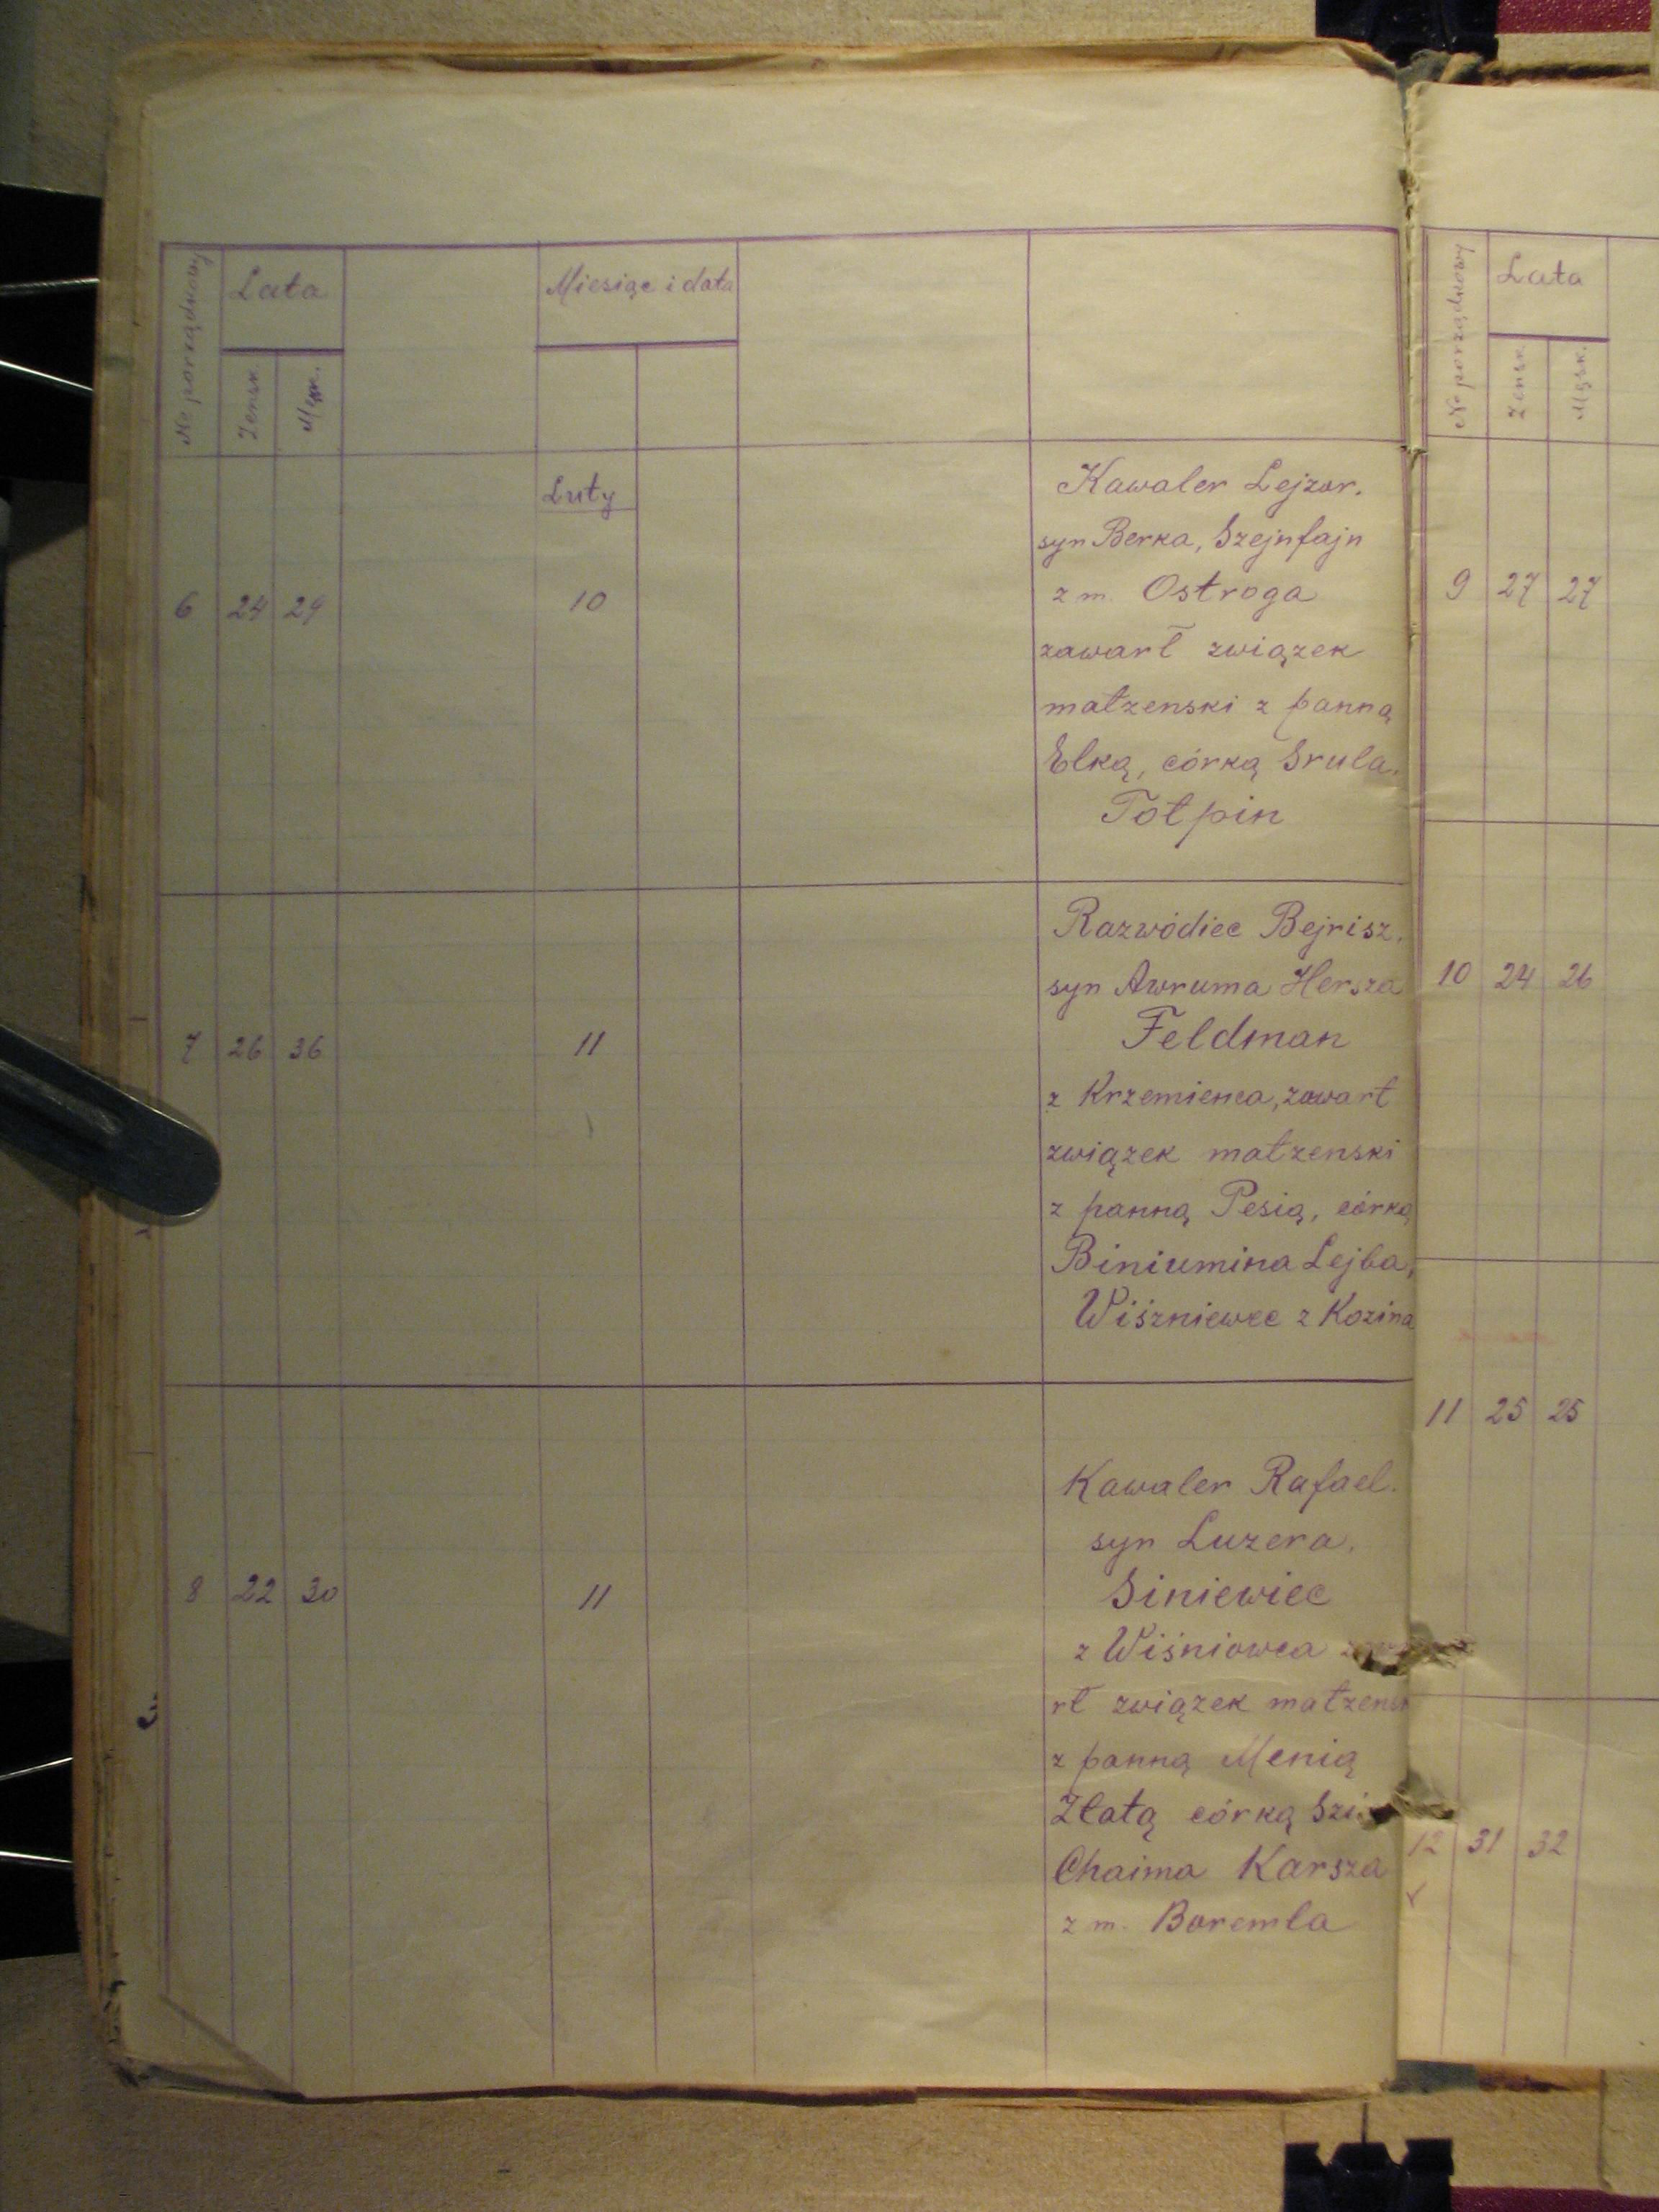 No porządkowy Lata Miesiąc i data
Żensk. Męsk.
Luty
6 24 29 10
Kawaler Lejzor,
syn Berka, Szejnfajn
z m. Ostroga
zawarł związek
małzenski z panną
Elką, córką Srula,
Tołpin
7 26 36 11
Razwódiec Bejrisz,
syn Awruma Hersza
Feldman
z Krzemienca, zawarł
związek małzenski
z panną Pesią, córką
Biniumina Lejba,
Wiśzniewec z Kozina
8 22 30 11
Kawaler Rafael.
syn Luzera,
Siniewiec
z Wiśniowca
rł związek
z panną Menią
Złatą córką
Chaima Karsza
z m. Boremla
No porządkowy Lata
Żensk. Męsk.
9 27 27
10 24 26
11 25 25
12 31 32